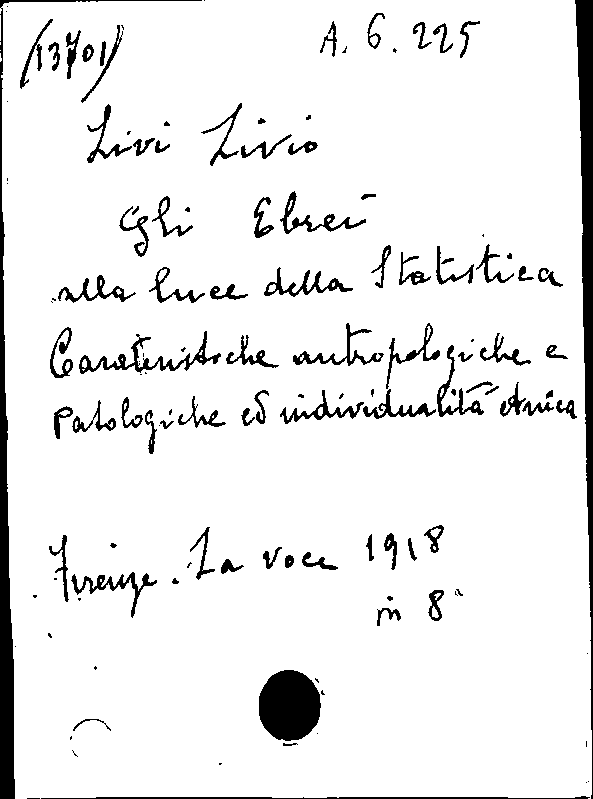 (13701)
A. 6. 225
Livi Livio
Gli Ebrei
alla luce della Statistica
Caratteristiche antropologiche e
patologiche ed individualità etnica
Firenze. La voce 1918
in 8°